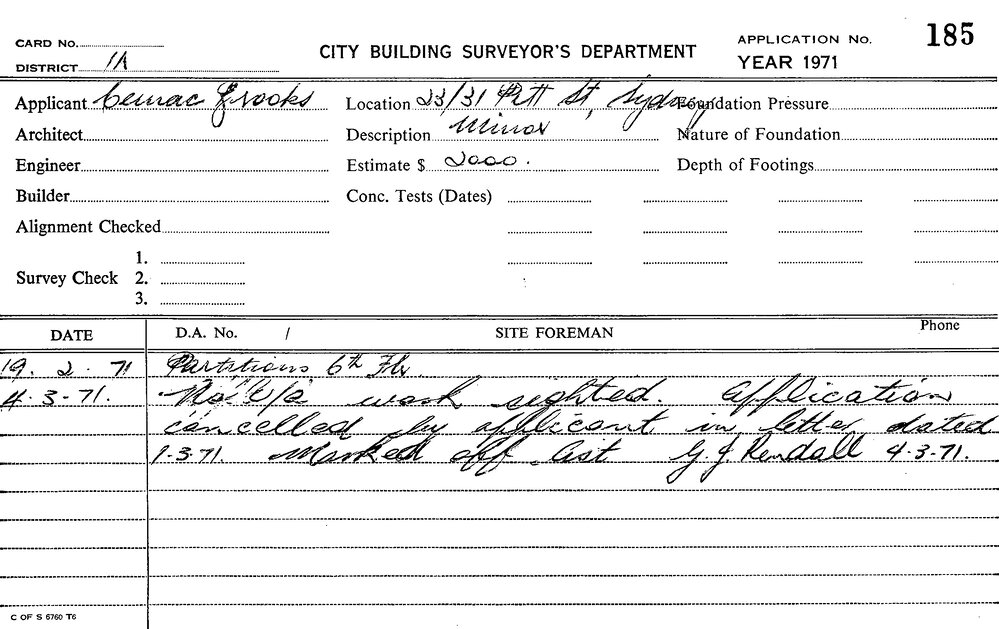 CARD No.
DISTRICT 1A
CITY BUILDING SURVEYOR'S DEPARTMENT
APPLICATION No. 185
YEAR 1971
Applicant Cemac Brooks
Location 23/31 Pitt St, Sydney
Foundation Pressure
Architect
Description Minor
Nature of Foundation
Engineer
Estimate $ 2000.
Depth of Footings
Builder
Conc. Tests (Dates)
Alignment Checked
Survey Check 1.
2.
3.
DATE D.A. No. / SITE FOREMAN Phone
19. 2. 71 Partitions 6th Flr.
4.3.71. No work sighted. Application
cancelled by applicant in letter dated
1.3.71. Marked off list G.J. Rendall 4.3.71.
C OF S 6760 T6